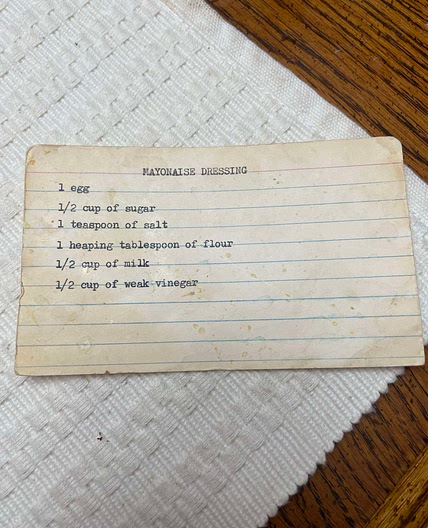 MAYONAISE DRESSING
1 egg
1/2 cup of sugar
1 teaspoon of salt
1 heaping tablespoon of flour
1/2 cup of milk
1/2 cup of weak vinegar